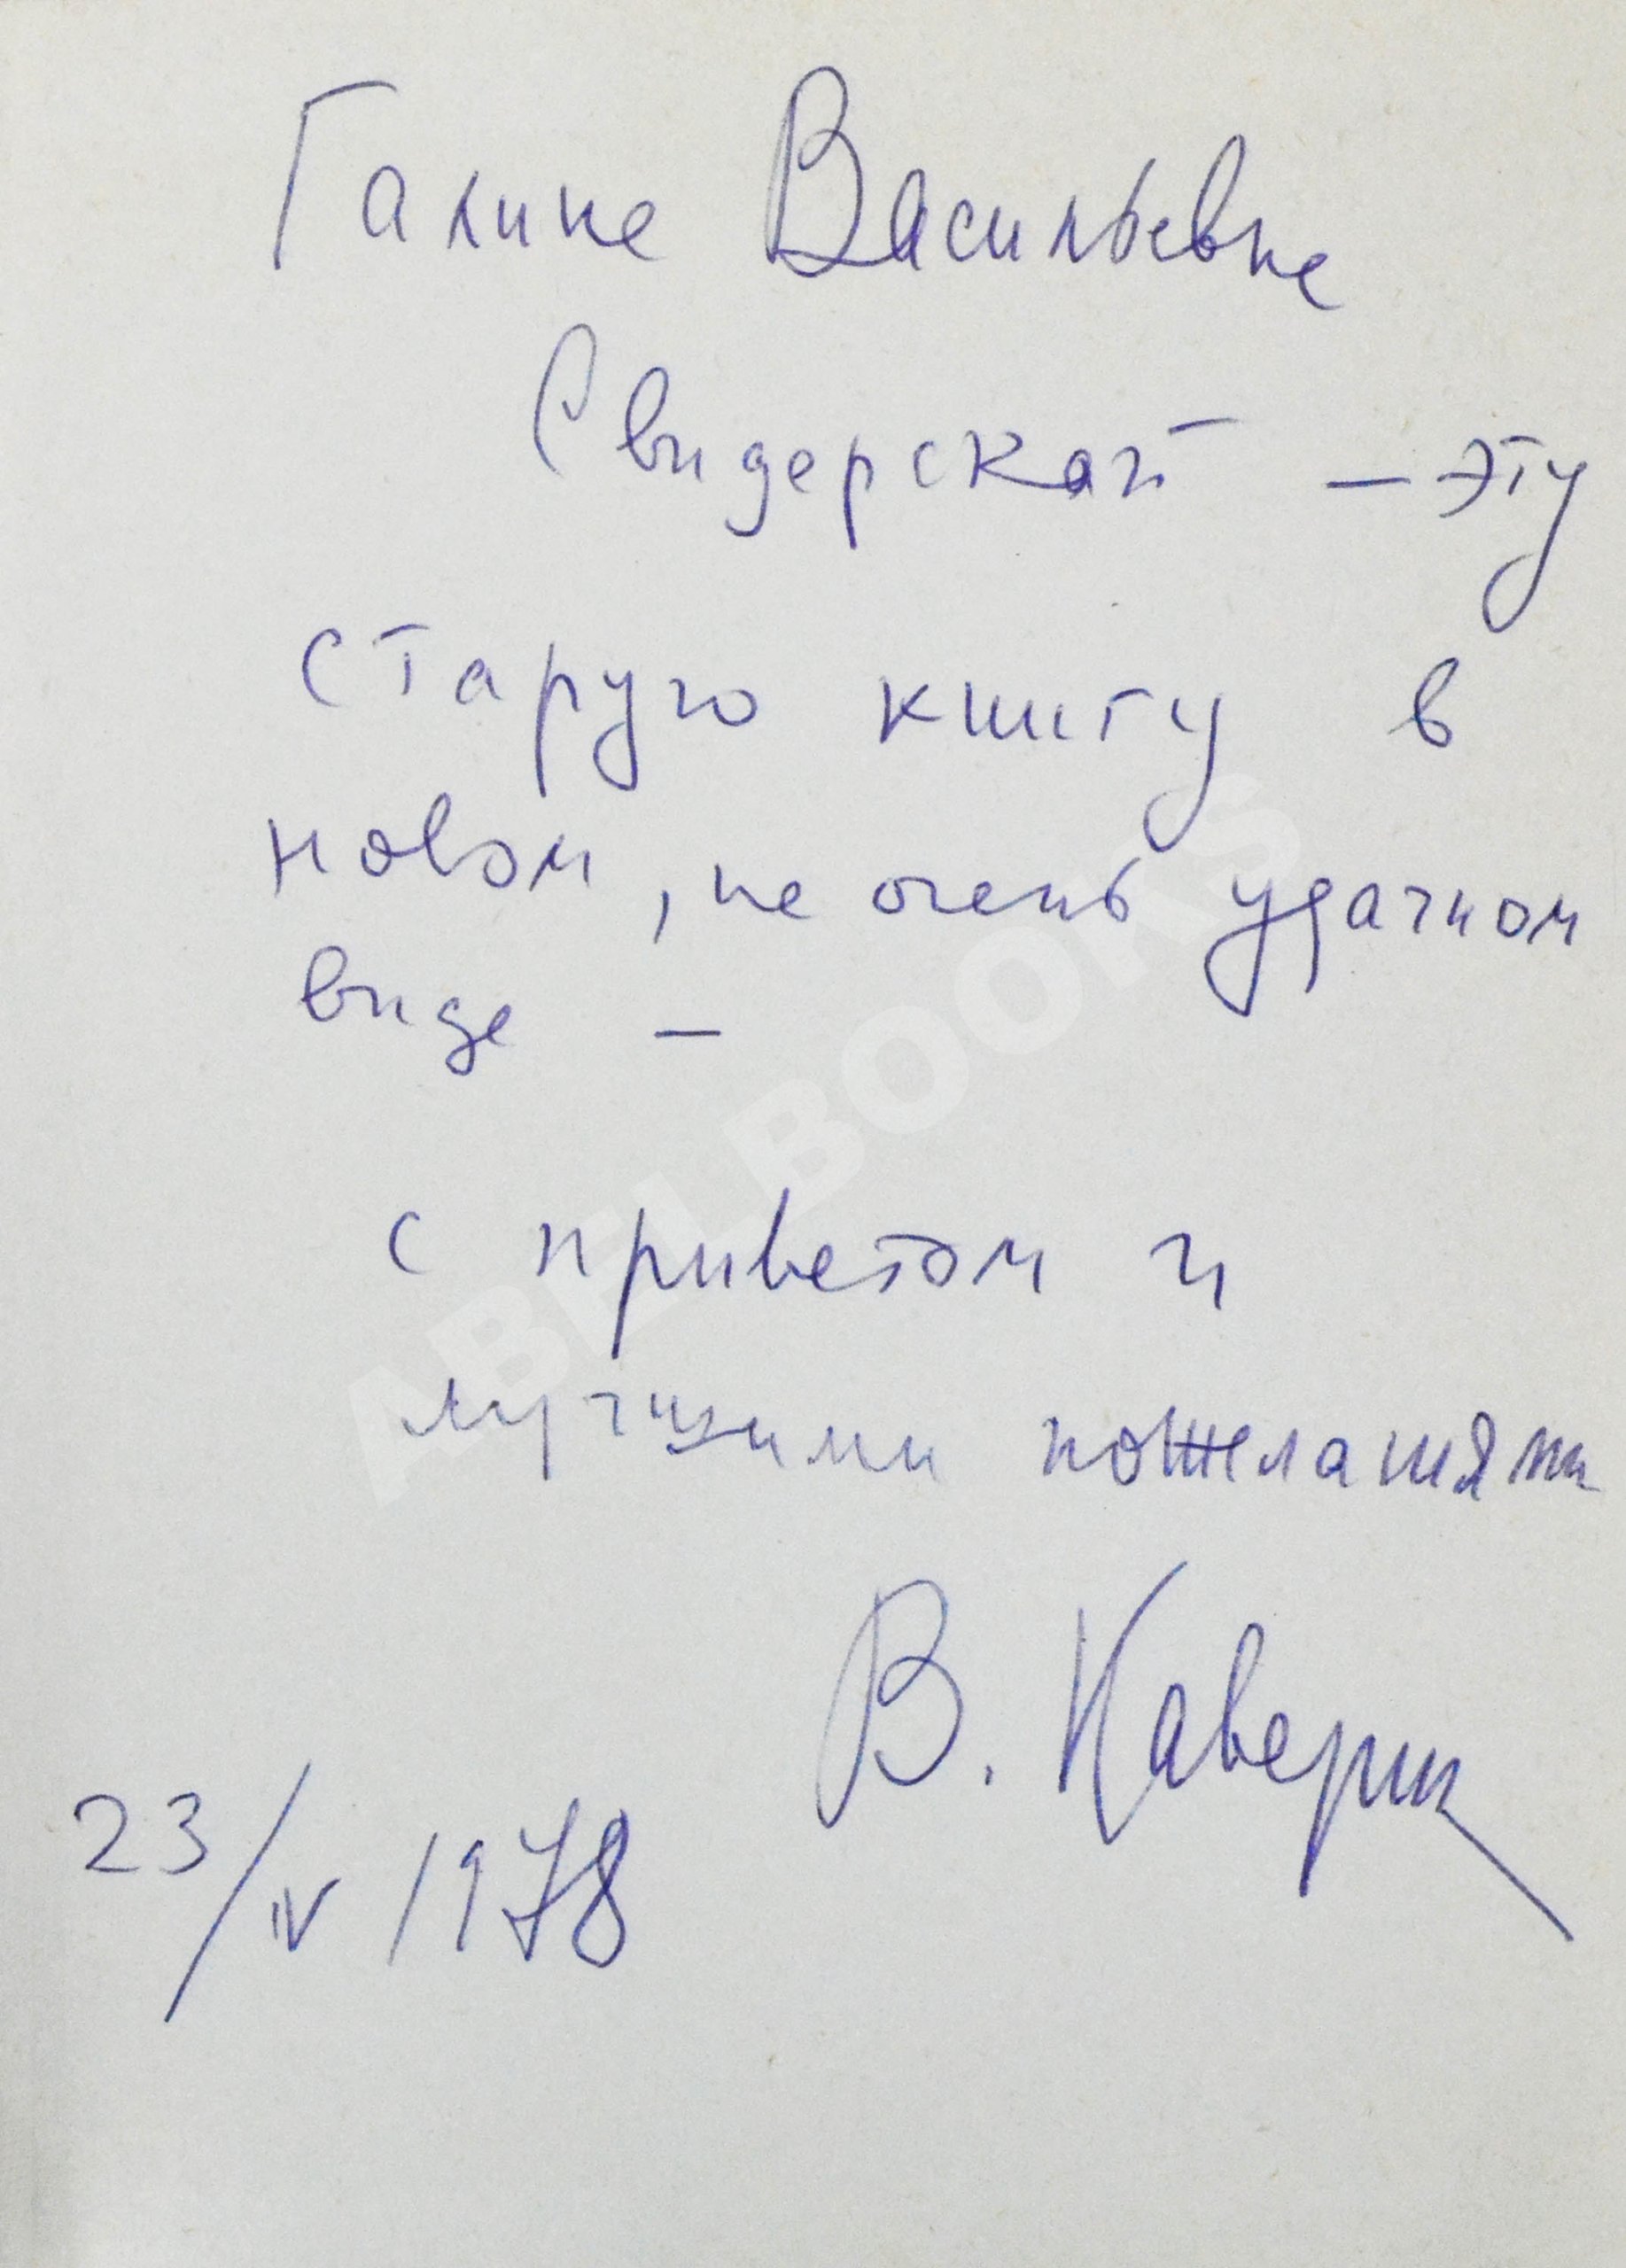 Галине Васильевне
Свидерской – эту
старую книгу в
новом, не очень удачном
виде –
с приветом и
лучшими пожеланиями
В. Каверин
23/IV 1978
ABELBOOKS